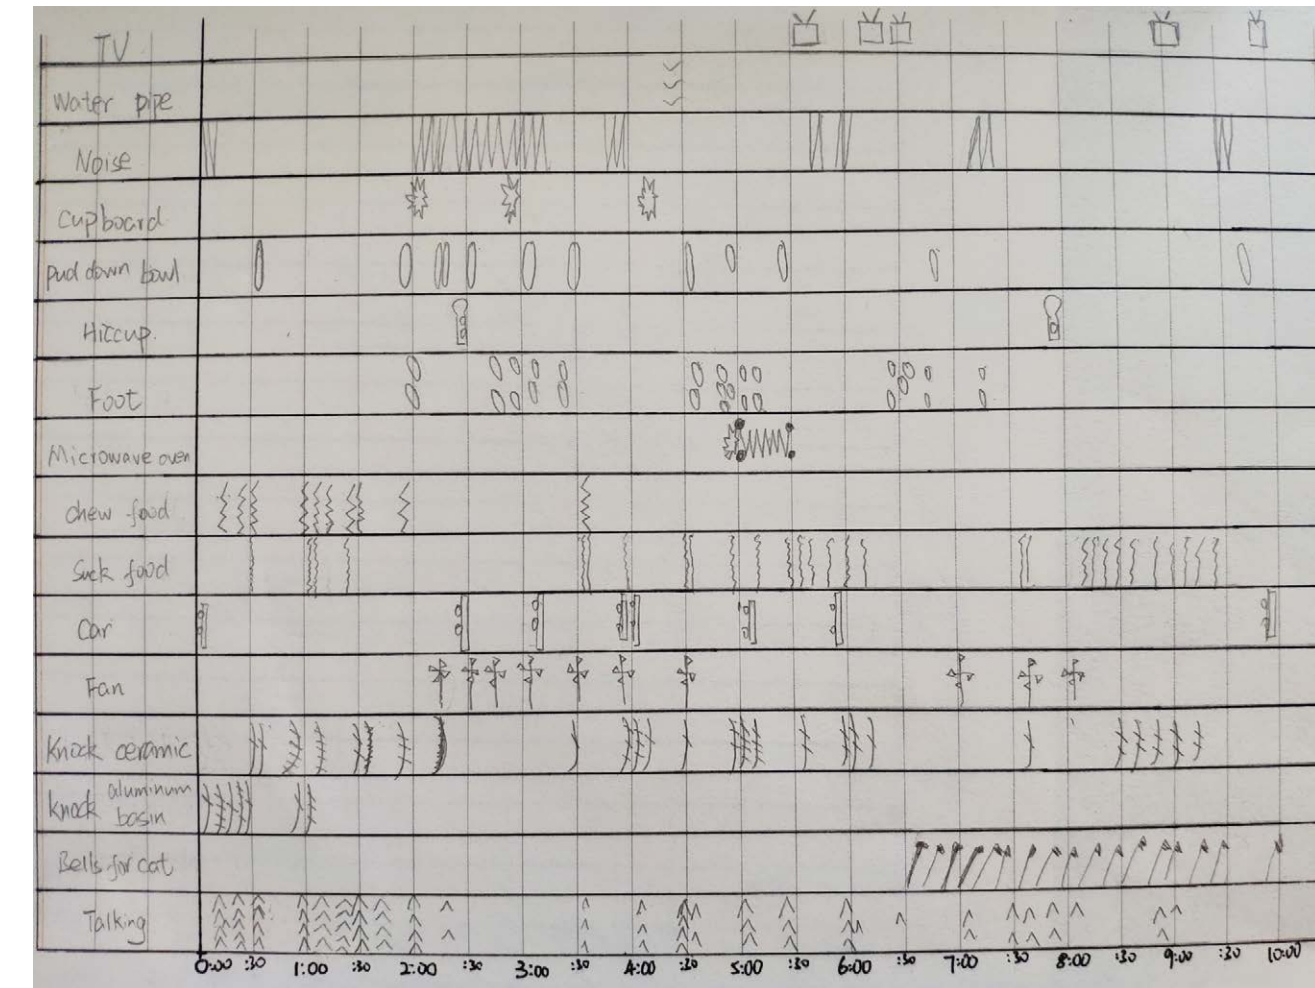 TV
Water pipe
Noise
Cupboard
Pud down bowl
Hiccup.
Foot
Microwave oven
chew food
Suck food
Car
Fan
Knock ceramic
Knock aluminum basin
Bells for cat
Talking
0:00 :30 1:00 :30 2:00 :30 3:00 :30 4:00 :30 5:00 :30 6:00 :30 7:00 :30 8:00 :30 9:00 :30 10:00